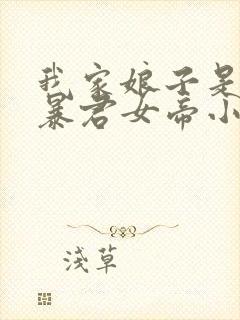 我家娘子是
暴君女帝小
浅草